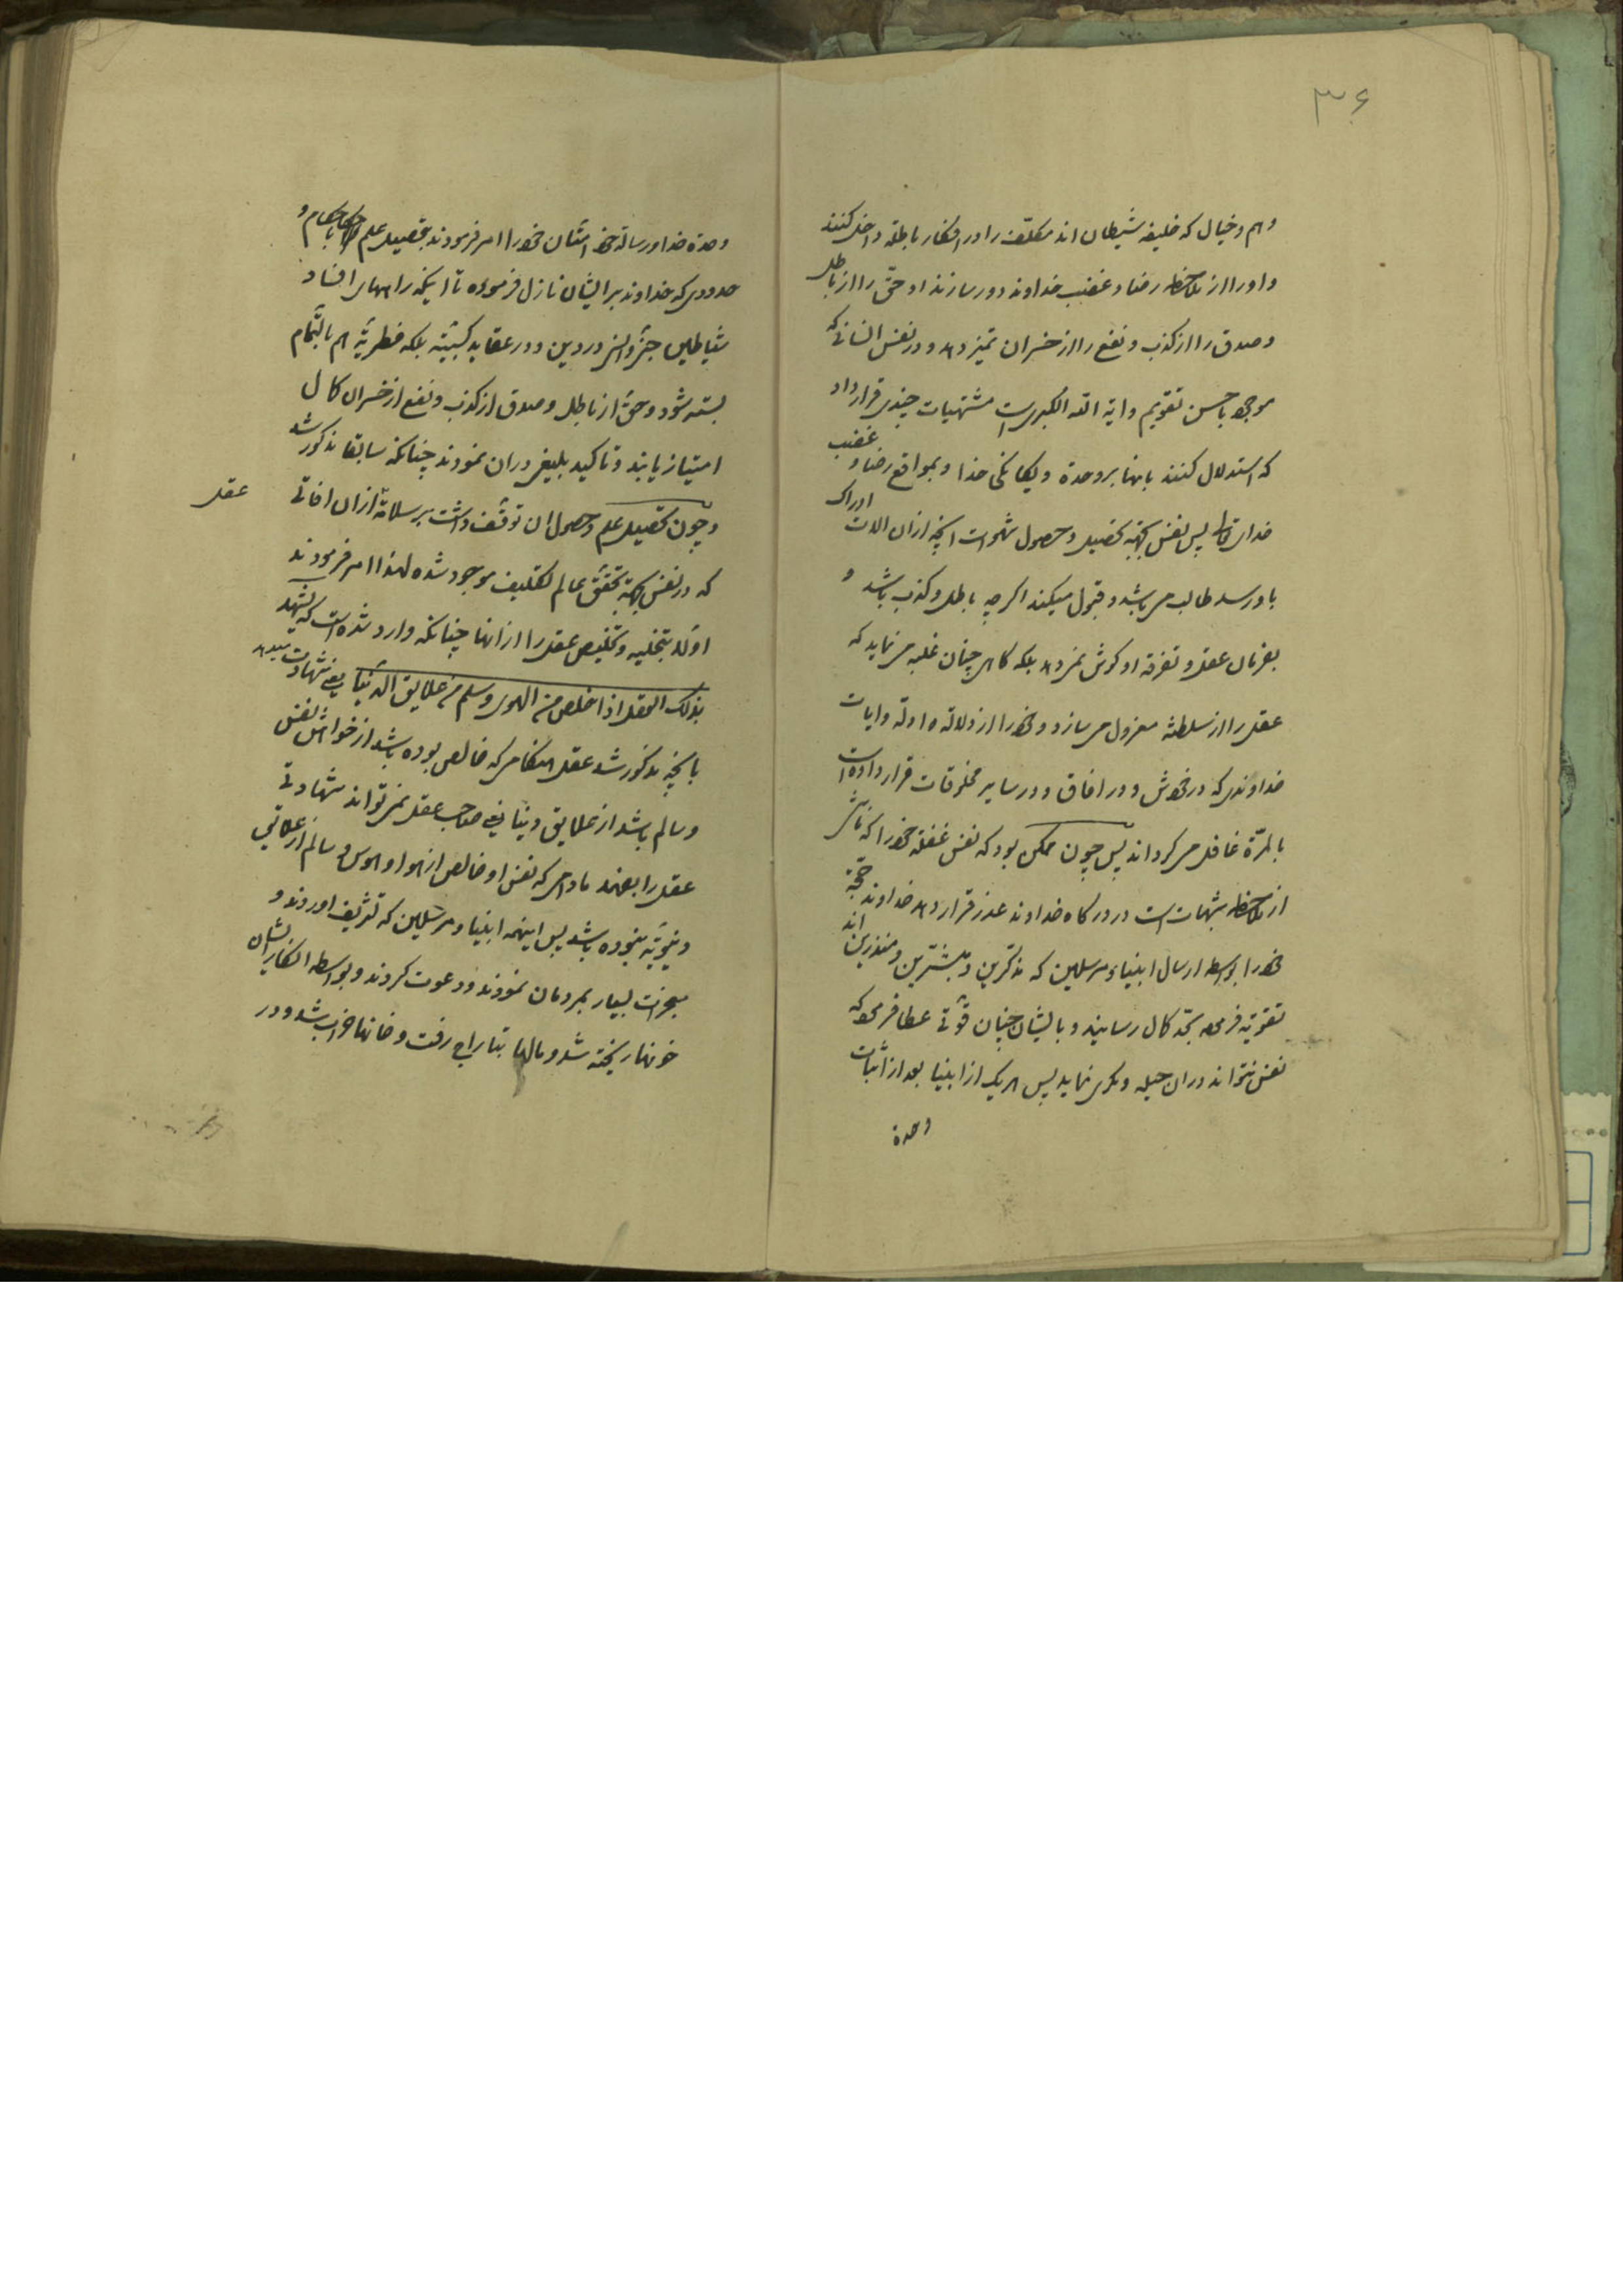 ۳۶
وهم و خیال که خلیفه شیطان اند مکلّف را در افکار باطله داخل کنند
و او را از ملاحظه رضا و غضب خداوند دور سازند او حقّ را از باطل
و صدق را از کذب و نفع را از خسران تمیز دهد و در نفس انسانی که
موجود باحسن تقویم و ایة الله الکبری است مشتهیات چندی قرار داد
که استدلال کنند بانها بر وحدة و یگانگی خدا و بمواقع رضا و غضب
خدای تعالی پس نفس بجهة تحصیل و حصول شهوات انچه از ان الات ادراک
باو رسد طالب می باشد و قبول میکند اگر چه باطل و کذب باشد و
بفرمان عقل و تفرقه او گوش نمی دهد بلکه گاهی چنان غلبه می نماید که
عقل را از سلطنة معزول می سازد و خود را از دلالة ادلّه و ایات
خداوندی که در خودش و در افاق و در سایر مخلوقات قرار داده است
بالمرّة غافل می گرداند پس چون ممکن بود که نفس غفلة خود را که ناشی
از ملاحظه شبهات است در درگاه خداوند عذر قرار دهد خداوند حجّة
خود را بواسطه ارسال انبیاء و مرسلین که مذکّرین و مبشّرین و منذرین اند
تقویة فرموده بحدّ کمال رسانید و بایشان چنان قوّتی عطا فرمود که
نفس نتواند در ان حیله و مکری نماید پس هر یک از انبیا بعد از اثبات
وحدة
وحدة خدا و رسالة خود امّتان خود را امر فرمودند بتحصیل علم باحکام و
حدودی که خداوند بر ایشان نازل فرموده تا اینکه راههای افساد
شیاطین جنّ و انس در دین و در عقاید کسبیّه بلکه فطریّه هم بالتّمام
بسته شود و حقّ از باطل و صدق از کذب و نفع از خسران کمال
امتیاز یابند و تاکید بلیغی در ان نمودند چنانکه سابقا مذکور شد
و چون تحصیل علم و حصول ان توقّف داشت بر سلامة از ان افاتی عقل
که در نفس بجهة تحقّق عالم تکلیف موجود شده لهذا امر فرمودند
اوّلا بتخلیه و تخلیص عقل را از انها چنانکه وارد شده است که یشهد
بذلک العقل اذا خلص من الهوی و سلم من علایق الدنیا یعنی شهادت میدهد
بانچه مذکور شد عقل هنگامی که خالص بوده باشد از خواهش نفس
و سالم باشد از علایق دنیا یعنی صاحب عقل نمی تواند شهادتی
عقل را بفهمد مادامی که نفس او خالص از هوا و هوس و سالم از علایق
دنیویّه نبوده باشد پس اینهمه انبیا و مرسلین که تشریف اوردند و
معجزات بسیار بمردمان نمودند و دعوت کردند و بواسطه انکار ایشان
خونها ریخته شد و مالها بتاراج رفت و خانها خراب شد و در